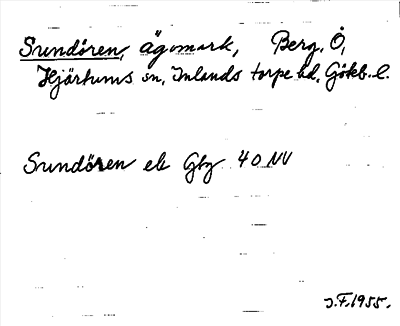 Sundören, ägomark, Berg, Ö,
Hjärtums sn, Inlands torpe hd, Göteb. l.
Sundören ek Gbg 40 NV
J.F. 1955.